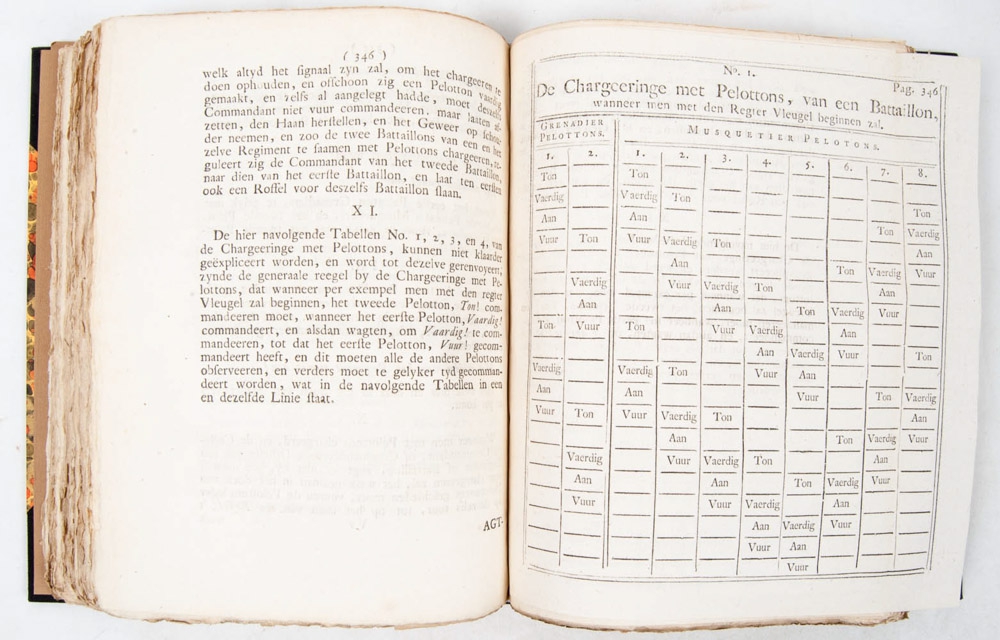 ( 346 )
welk altyd het ſignaal zyn zal, om het chargeeren te
doen ophouden, en offchoon zig een Pelotton vaerdig
gemaakt, en zelfs al aangelegt hadde, moet deszelfs
Commandant niet vuur commandeeren, maar laaten af-
zetten, den Haan herſtellen, en het Geweer op ſchou-
der neemen, en zoo de twee Battaillons van een en het
zelve Regiment te ſaamen met Pelottons chargeeren, re-
guleert zig de Commandant van het tweede Battaillon,
naar dien van het eerſte Battaillon, en laat ten eerſten
ook een Roffel voor deszelfs Battaillon ſlaan.
X I.
De hier navolgende Tabellen No. 1, 2, 3, en 4, van
de Chargeeringe met Pelottons, kunnen niet klaarder
geëxpliceert worden, en word tot dezelve gerenvoyeert,
zynde de generaale reegel by de Chargeeringe met Pe-
lottons, dat wanneer per exempel men met den regter
Vleugel zal beginnen, het tweede Pelotton, Ton! com-
mandeeren moet, wanneer het eerſte Pelotton, Vaardig!
commandeert, en alsdan wagten, om Vaardig! te com-
mandeeren, tot dat het eerſte Pelotton, Vuur! gecom-
mandeert heeft, en dit moeten alle de andere Pelottons
obſerveeren, en verders moet te gelyker tyd gecomman-
deert worden, wat in de navolgende Tabellen in een
en dezelfde Linie ſtaat.
AGT-
No. 1.
Pag. 346
De Chargeeringe met Pelottons, van een Battaillon,
wanneer men met den Regter Vleugel beginnen zal.
GRENADIER PELOTTONS. MUSQUETIER PELOTONS.
1. 2. 1. 2. 3. 4. 5. 6. 7. 8.
Ton Ton
Vaerdig Vaerdig Ton Ton
Aan Aan Ton Vaerdig
Vuur Ton Vuur Vaerdig Ton Aan
Aan Ton Vaerdig Vuur
Vaerdig Vuur Vaerdig Ton Aan
Aan Aan Ton Vaerdig Vuur
Ton Vuur Ton Vuur Vaerdig Aan
Aan Vaerdig Vuur Ton
Vaerdig Vaerdig Ton Vuur Aan
Aan Aan Vuur Ton Vaerdig
Vuur Ton Vuur Vaerdig Ton Aan
Aan Ton Vaerdig Vuur
Vaerdig Vuur Vaerdig Ton Aan
Aan Aan Ton Vaerdig Vuur
Vuur Vuur Vaerdig Aan
Aan Vaerdig Vuur
Vuur Aan
Vuur